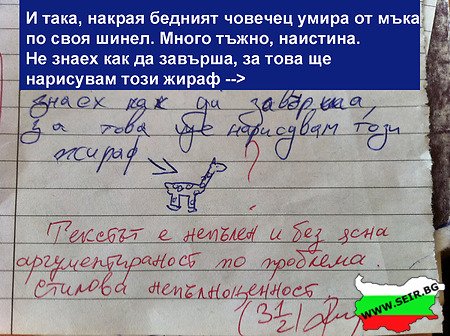 И така, накрая бедният човечец умира от мъка
по своя шинел. Много тъжно, наистина.
Не знаех как да завърша, за това ще
нарисувам този жираф -->
знаех как да завърша,
за това ще нарисувам този
жираф
?
Текстът е непълен и без ясна
аргументираност по проблема
стилова непълноценност
(3 1/2)
WWW.SEIR.BG